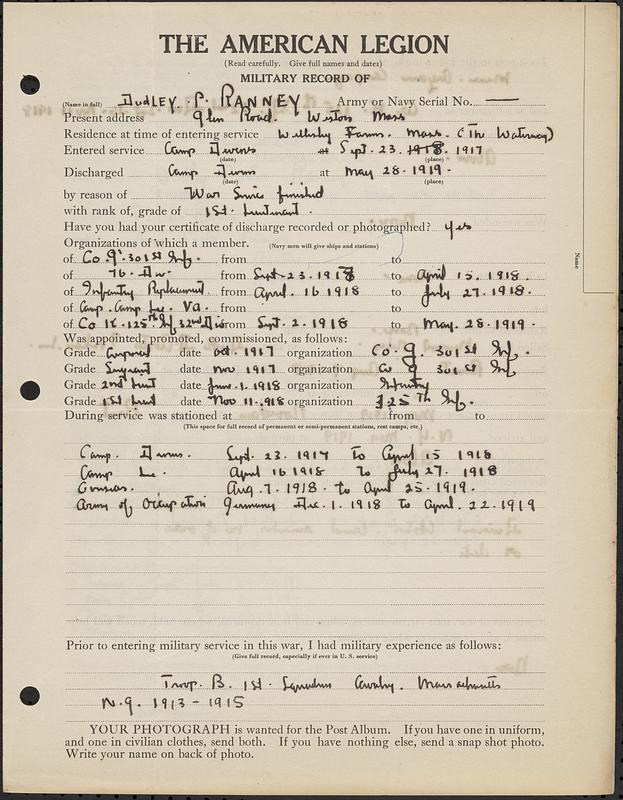 THE AMERICAN LEGION
(Read carefully. Give full names and dates)
MILITARY RECORD OF
(Name in full) Dudley. P. RANNEY Army or Navy Serial No. —
Present address Glen Road. Weston Mass
Residence at time of entering service Wellesley Farms. Mass. (The Waterway)
Entered service Camp Devens at Sept. 23. 1918. 1917
(date) (place)
Discharged Camp Devens at May 28. 1919.
(date) (place)
by reason of War Service finished
with rank, of grade of 1st. Lieutenant.
Have you had your certificate of discharge recorded or photographed? Yes
Organizations of which a member. (Navy men will give ships and stations)
of Co. G. 301st Inf. from to
of 76. Div. from Sept-23. 1917 to April 15. 1918.
of Infantry Replacement. from April. 16 1918 to July 27. 1918.
of Camp. Camp Lee. Va. from to
of Co K. 125th Inf 32nd Div from Sept. 2. 1918 to May. 28. 1919.
Was appointed, promoted, commissioned, as follows:
Grade Corporal date Oct. 1917 organization Co. G. 301st Inf.
Grade Sergeant date Nov 1917 organization Co G 301st Inf.
Grade 2nd Lieut date June. 1. 1918 organization Infantry
Grade 1st Lieut date Nov 11. 918 organization 125th Inf.
During service was stationed at from to
(This space for full record of permanent or semi-permanent stations, rest camps, etc.)
Camp. Devens. Sept. 23. 1917 to April 15 1918
Camp Lee. April 16 1918 to July 27. 1918
Overseas. Aug. 7. 1918. to April 25. 1919.
Army of Occupation Germany Dec. 1. 1918 to April. 22. 1919
Prior to entering military service in this war, I had military experience as follows:
(Give full record, especially if ever in U. S. service)
Troop. B. 1st. Squadron Cavalry. Massachusetts
N.G. 1913 - 1915
YOUR PHOTOGRAPH is wanted for the Post Album. If you have one in uniform,
and one in civilian clothes, send both. If you have nothing else, send a snap shot photo.
Write your name on back of photo.
Name